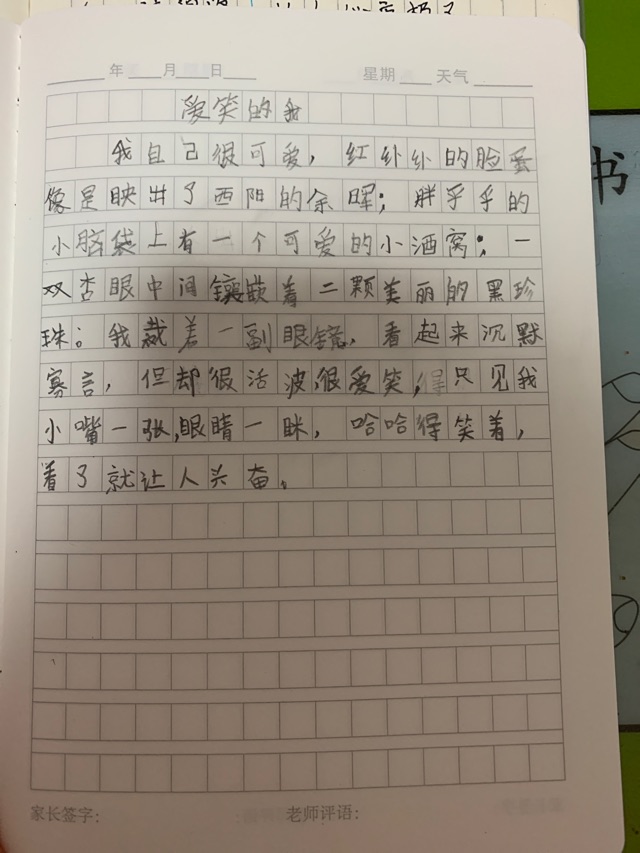 年 月 日 星期 天气
爱笑的我
我自己很可爱，红外外的脸蛋
像是映出了西阳的余晖；胖乎乎的
小脑袋上有一个可爱的小酒窝；一
双杏眼中间镶嵌着二颗美丽的黑珍
珠。我戴着一副眼镜，看起来沉默
寡言，但却很活波，很爱笑，得只见我
小嘴一张，眼睛一眯，哈哈得笑着，
看了就让人头奋。
家长签字： 老师评语：
书